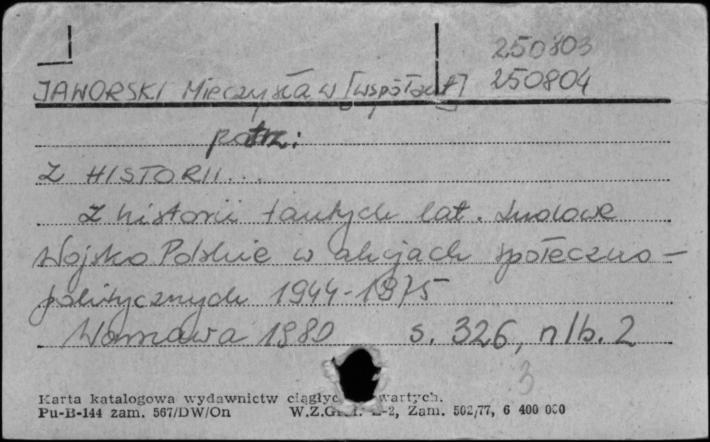 250803
250804
JAWORSKI Mieczysław [współaut]
patrz:
Z HISTORII...
Z historii tamtych lat. Ludowe
Wojsko Polskie w akcjach społeczno-
politycznych 1944-1975
Warszawa 1980 s. 326, nlb. 2
3
Karta katalogowa wydawnictw
Pu-B-144 zam. 567/DW/On Zam. 502/77, 6 400 000